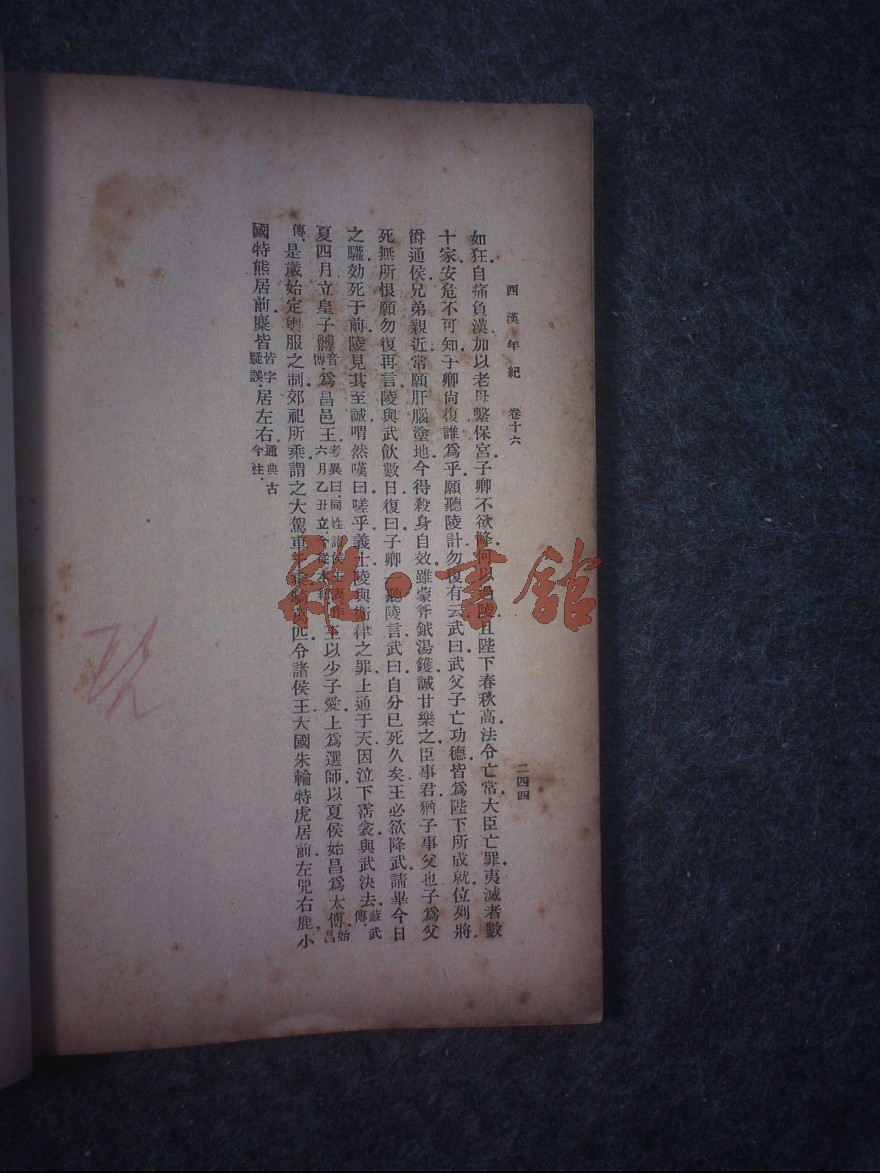 西漢年紀 卷十六
二四四
如狂自痛負漢加以老母繫保宮子卿不欲降何以過陵且陛下春秋高法令亡常大臣亡罪夷滅者數
十家安危不可知子卿尙復誰爲乎願聽陵計勿復有云武曰武父子亡功德皆爲陛下所成就位列將
爵通侯兄弟親近常願肝腦塗地今得殺身自效雖蒙斧鉞湯鑊誠甘樂之臣事君猶子事父也子爲父
死無所恨願勿復再言陵與武飮數日復曰子卿一聽陵言武曰自分已死久矣王必欲降武請畢今日
之驩効死于前陵見其至誠喟然嘆曰嗟乎義士陵與衞律之罪上通于天因泣下霑衾與武決去蘇武傳
夏四月立皇子髆音博爲昌邑王考異曰同姓諸侯王表作六月乙丑立今從本紀王以少子愛上爲選師以夏侯始昌爲太傅始昌
傳是歲始定輿服之制郊祀所乘謂之大駕車千乘騎萬匹令諸侯王大國朱輪特虎居前左兕右鹿小
國特熊居前麋皆皆字疑誤居左右通典古今注
雜·書館